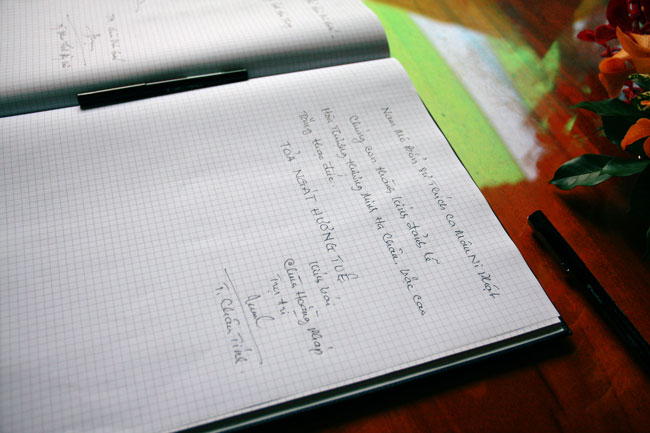 Nam Mô Bổn Sư Thích Ca Mâu Ni Phật
Chúng con thành kính đảnh lễ
Hòa Thượng thượng Minh hạ Châu, bậc cao
Tăng thạc đức
TỎA NGÁT HƯƠNG TUỆ
Kính bái
Chùa Hoằng Pháp
Trụ trì
T. Chân Tính